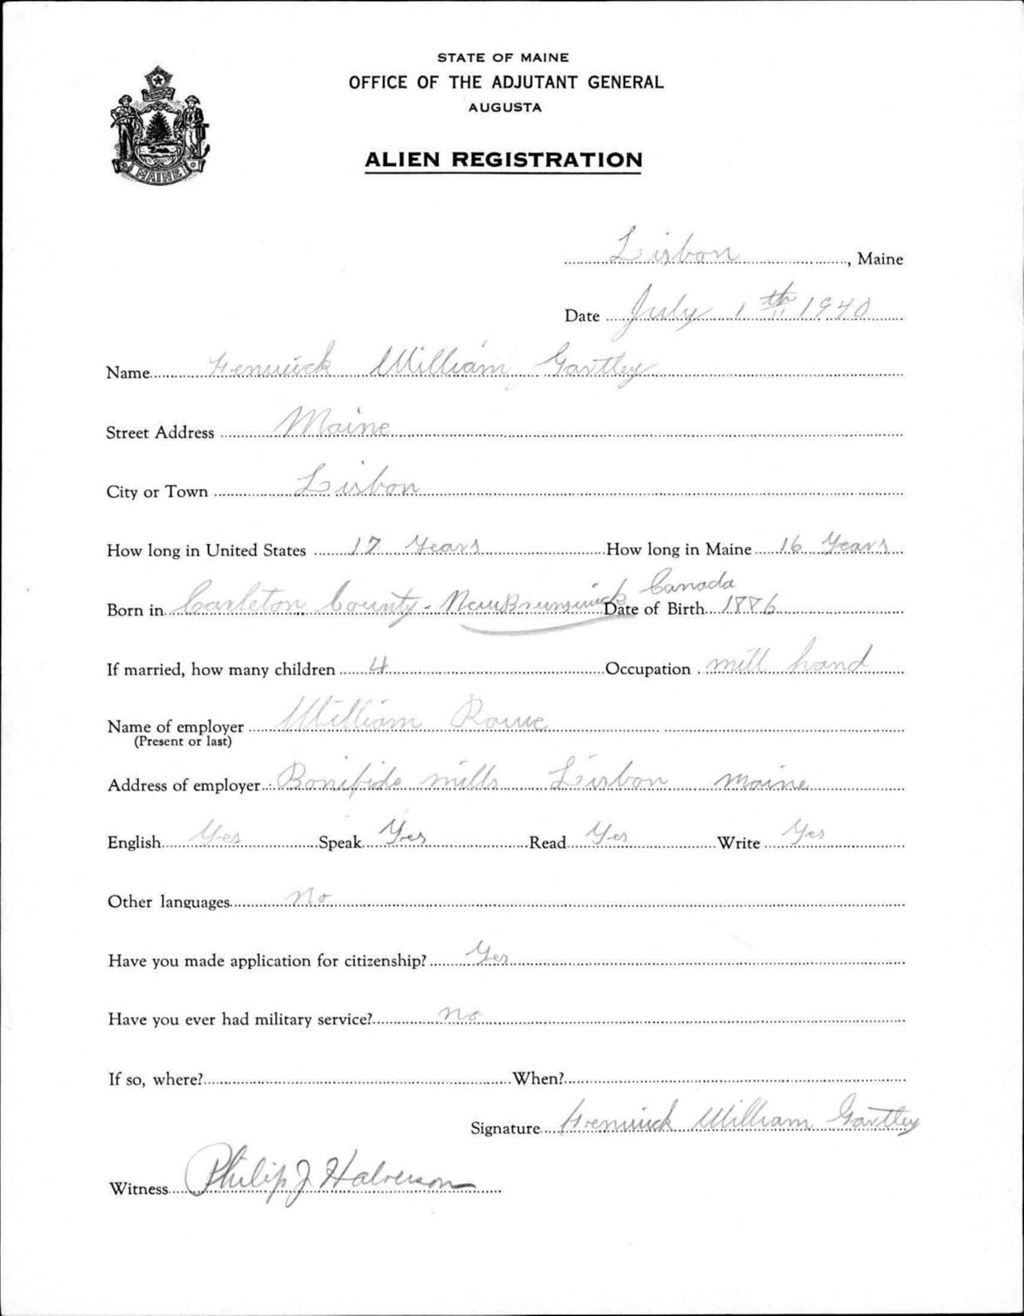 STATE OF MAINE
OFFICE OF THE ADJUTANT GENERAL
AUGUSTA
ALIEN REGISTRATION
MAINE
Lisbon, Maine
Date July 1th 1940
Name Fenwick William Gartley
Street Address Maine
City or Town Lisbon
How long in United States 17 Years How long in Maine 16 Years
Born in Carleton County - New Brunswick Canada Date of Birth 1886
If married, how many children 4 Occupation mill hand
Name of employer William Rowe
(Present or last)
Address of employer Bonifide mills Lisbon maine
English Yes Speak Yes Read Yes Write Yes
Other languages No
Have you made application for citizenship? Yes
Have you ever had military service? No
If so, where? When?
Signature Fenwick William Gartley
Witness Philip J Halverson